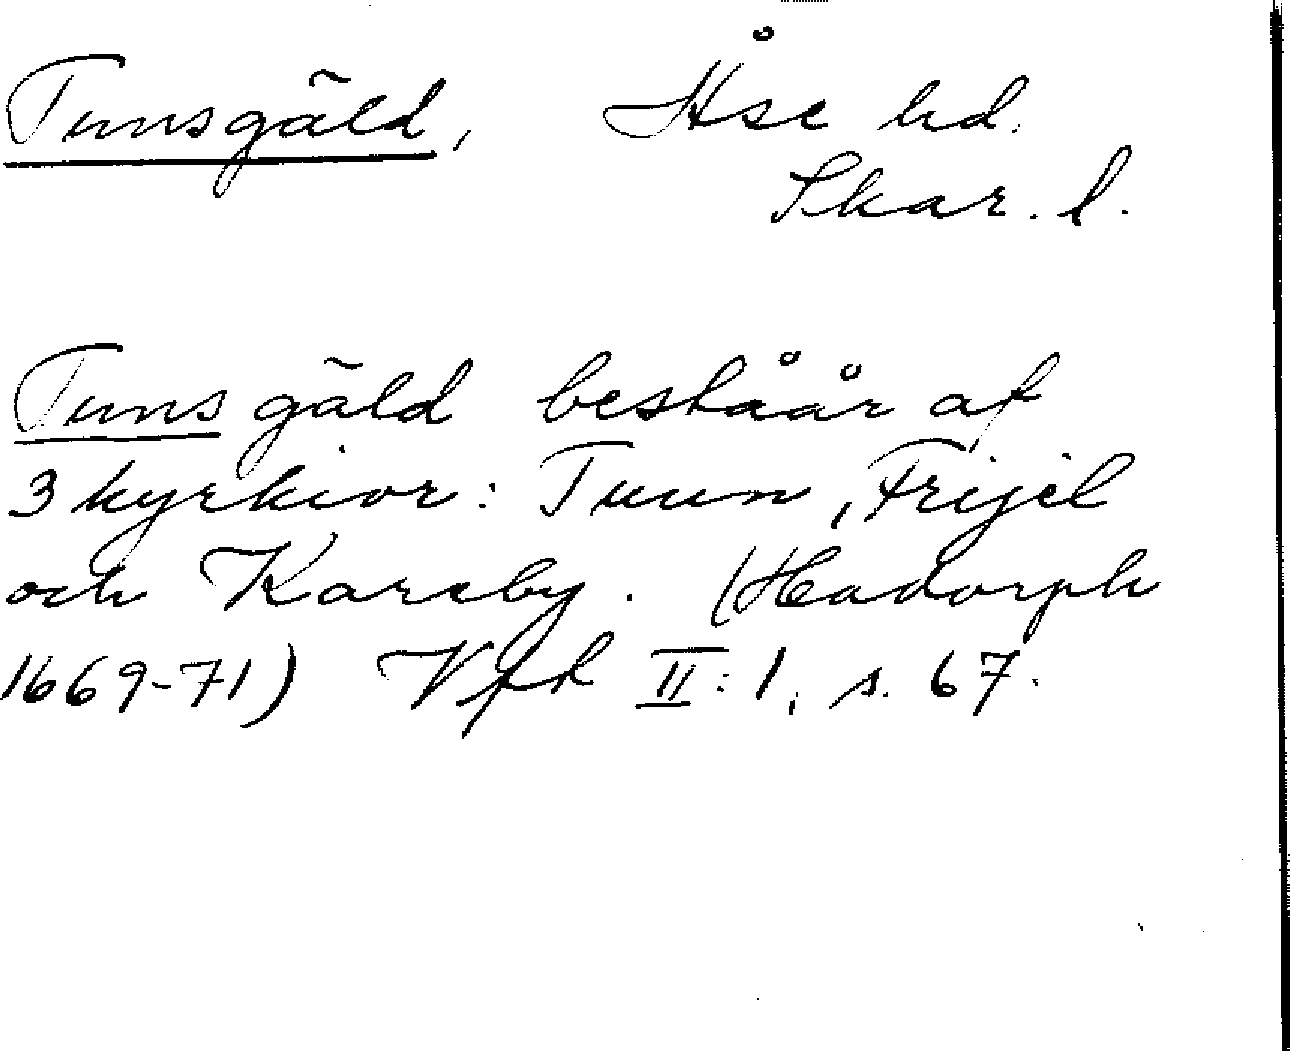 Tunsgäld, Åse hd.
Skar. l.
Tuns gäld beståår af
3 kyrkior: Tuun, Frijel
och Kareby. (Hadorph
1669-71) Vfh II:1, s. 67.